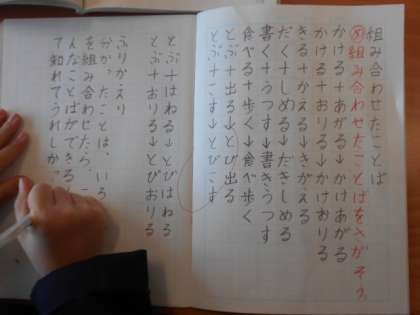 組み合わせたことば
組み合わせたことばをさがそう。
かける+あがる→かけあがる
かける+おりる→かけおりる
きる+かえる→きりかえる
だく+しめる→だきしめる
書く+うつす→書きうつす
食べる+歩く→食べ歩く
とぶ+出る→とび出る
とぶ+こす→とびこす
とぶ+はねる→とびはねる
とぶ+おりる→とびおりる
ふりかえり
分かったことは、いろ
を組み合わせたら、こ
んなことばができると
て知れてうれしかっ